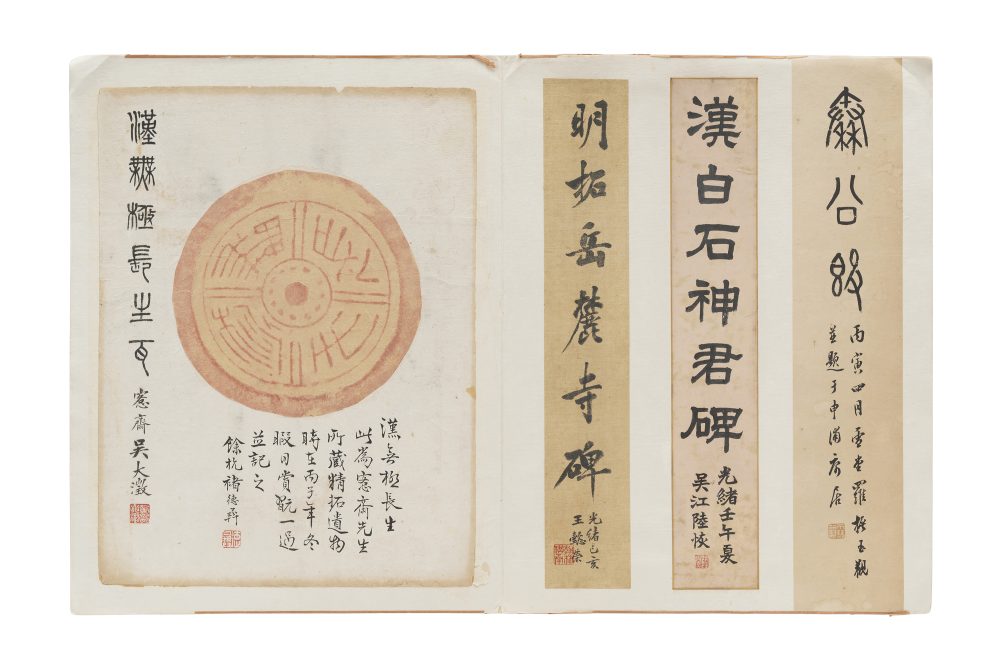 秦公
丙寅四月雪堂羅振玉觀
並題于申浦寓居
漢白石神君碑
光緒壬午夏
吳江陸恢
明拓岳麓寺碑
光緒己亥
王懿榮
漢無極長生
此為愙齋先生
所藏精拓遺物
時在丙子年冬
暇日賞翫一過
並記之
餘杭褚德彝
漢無極長生瓦
愙齋吳大澂